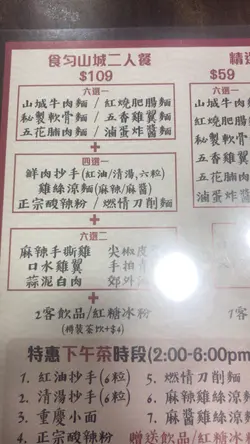 食勻山城二人餐
$109
六選一
山城牛肉麵 / 紅燒肥腸麵
秘製軟骨麵 / 五香雞翼麵
五花腩肉麵 / 滷蛋炸醬麵
+
四選一
鮮肉抄手(紅油/清湯,六粒)
雞絲涼麵(麻辣/麻醬)
正宗酸辣粉 / 燃情刀削麵
+
六選二
麻辣手撕雞 尖椒皮
口水雞翼 手拍青
蒜泥白肉 郊外
+
2客飲品/紅糖冰粉
(特製茶飲+$4)
精選
$59
六
山城牛肉麵
秘製軟骨麵
五花腩肉麵
滷蛋炸醬麵
特惠 下午茶時段(2:00-6:00pm
1. 紅油抄手(6粒) 5. 燃情刀削麵
2. 清湯抄手(6粒) 6. 麻辣雞絲涼
3. 重慶小面 7. 麻醬雞絲涼
4. 正宗酸辣粉 贈送飲品/紅